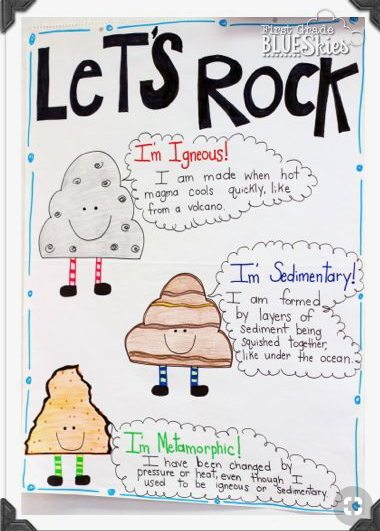 First Grade
BLUESkies
LeT'S ROCK
I'm Igneous!
I am made when hot
magma cools quickly, like
from a volcano.
I'm Sedimentary!
I am formed
by layers of
sediment being
squished together,
like under the ocean.
I'm Metamorphic!
I have been changed by
pressure or heat, even though I
used to be igneous or sedimentary